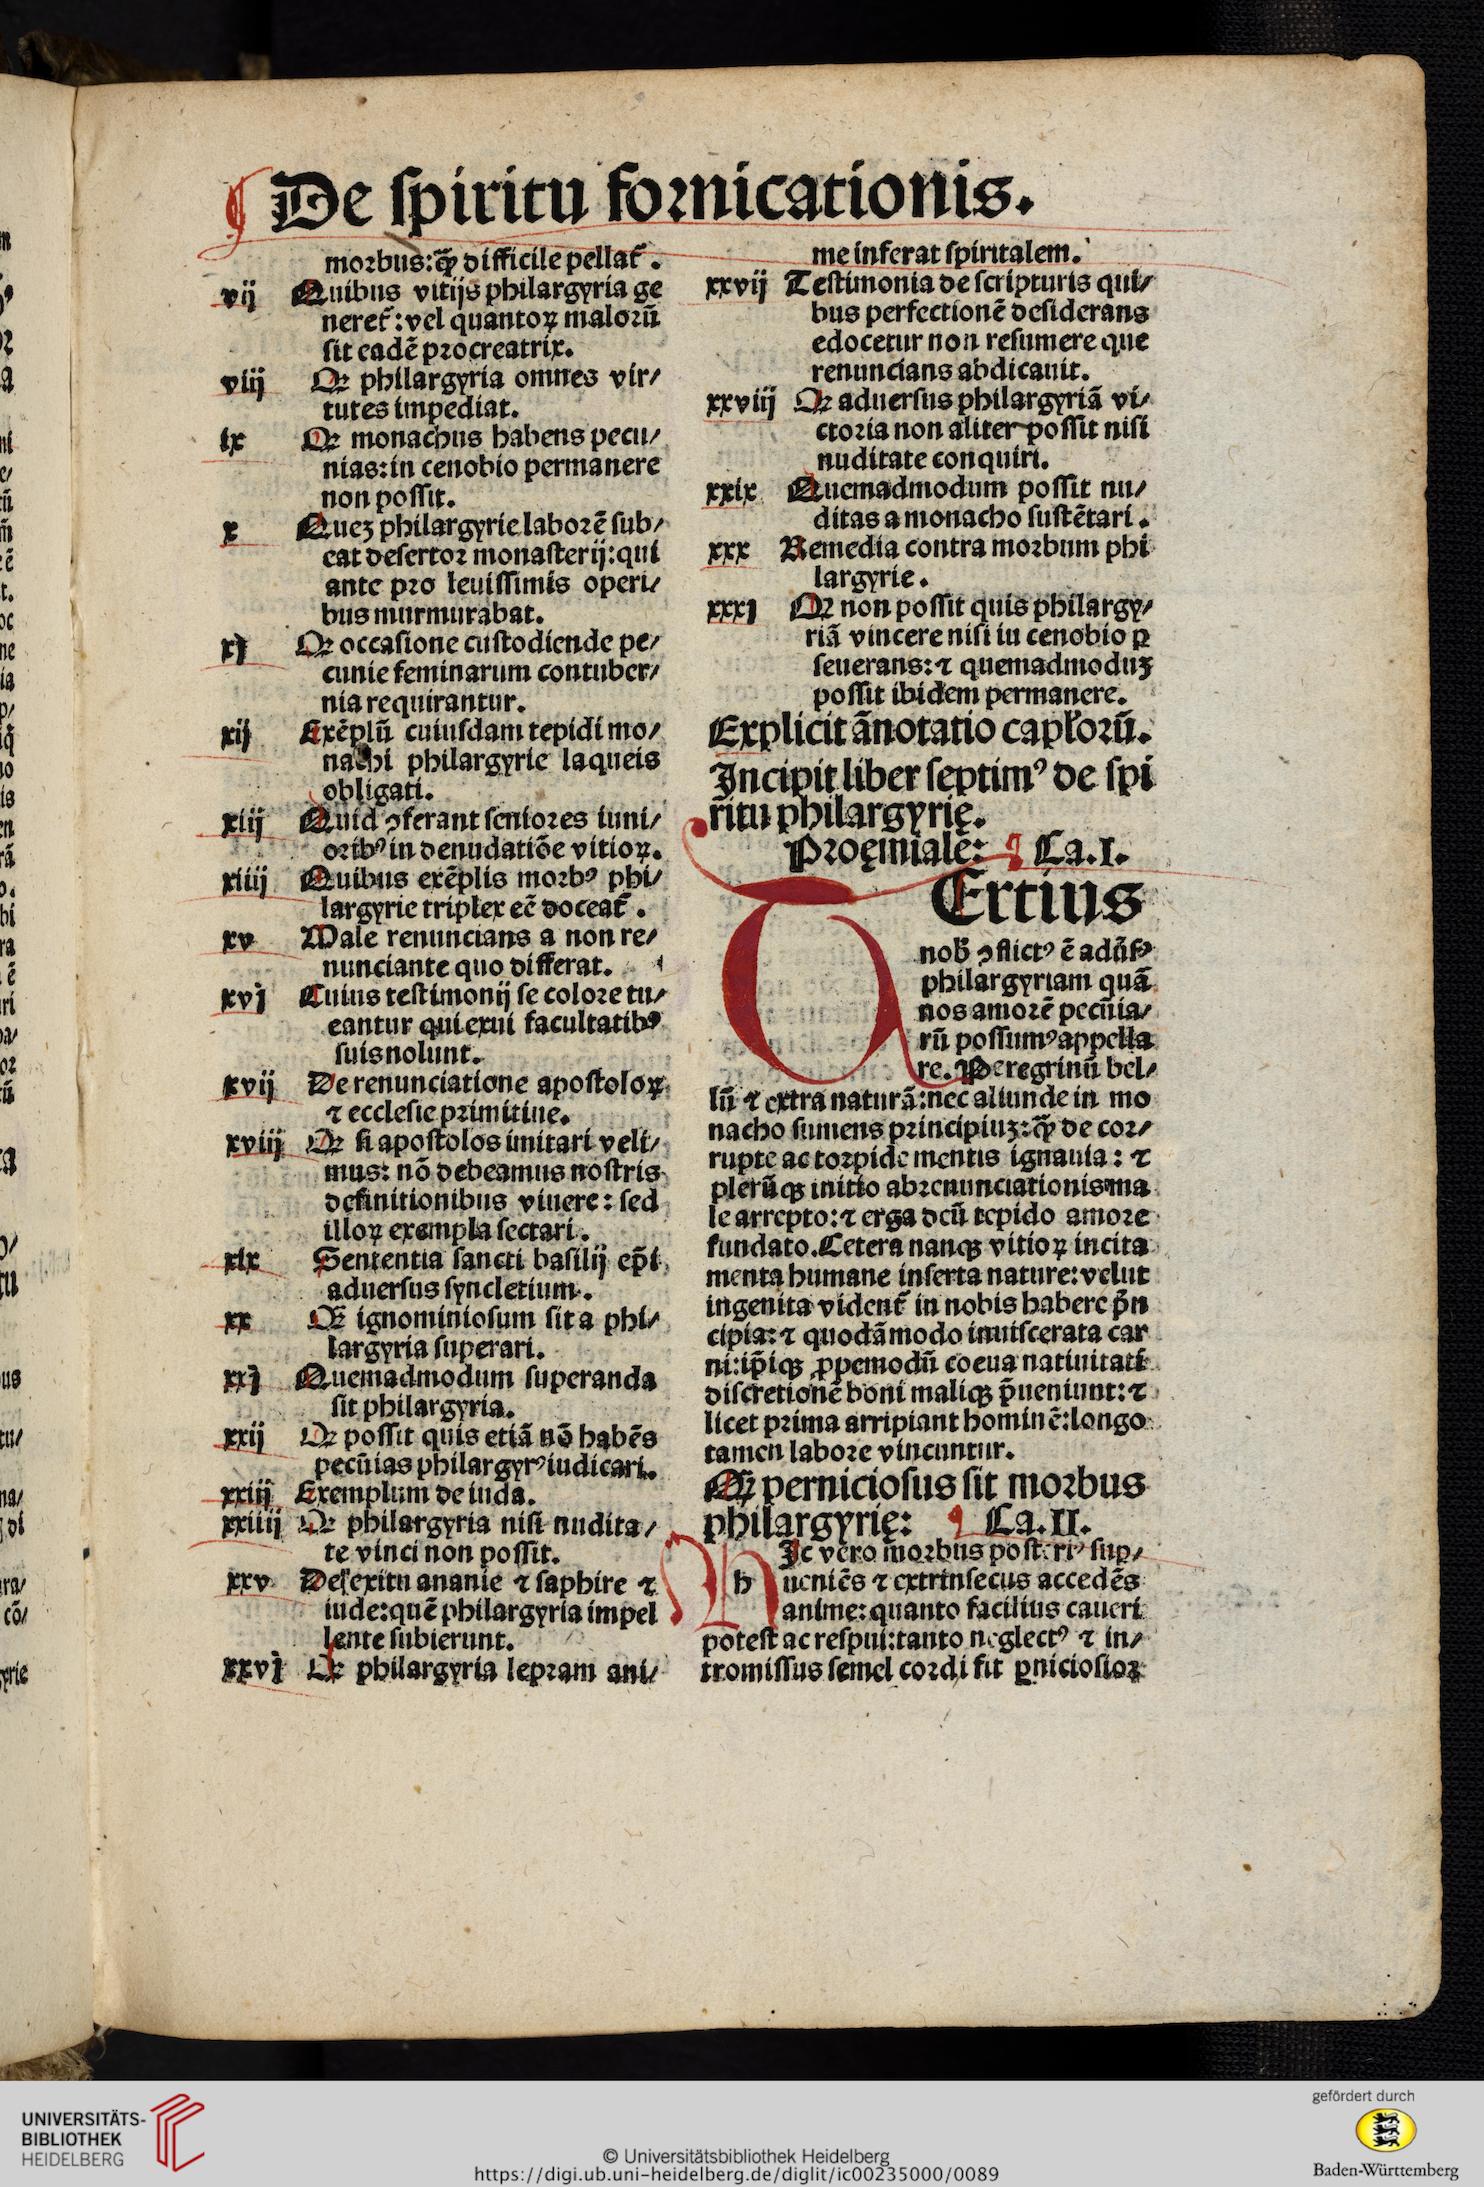 ¶ De spiritu fornicationis.
morbus: qꝫ difficile pellat᷑.
vij Quibus vitijs philargyria ge
neret᷑: vel quantoꝝ maloꝛū
sit eadē procreatrix.
viij Qꝛ philargyria omnes vir/
tutes impediat.
ix Qꝛ monachus habens pecu/
nias: in cenobio permanere
non possit.
x Queꝫ philargyrie laborē sub/
eat desertor monasterij: qui
ante pro leuissimis operi/
bus murmurabat.
xj Qꝛ occasione custodiende pe/
cunie feminarum contuber/
nia requirantur.
xij Exēplū cuiusdam tepidi mo/
nachi philargyrie laqueis
obligati.
xiij Quid ↄferant seniores iuni/
oribꝰ in denudatiōe vitioꝝ.
xiiij Quibus exēplis morbꝰ phi/
largyrie triplex eē doceat᷑.
xv Male renuncians a non re/
nunciante quo differat.
xvj Cuius testimonij se colore tu/
eantur qui exui facultatibꝰ
suis nolunt.
xvij De renunciatione apostoloꝝ
⁊ ecclesie primitiue.
xviij Qꝛ si apostolos imitari veli/
mus: nō debeamus nostris
definitionibus viuere: sed
illoꝝ exempla sectari.
xix Sententia sancti basilij ep̄i
aduersus syncletium.
xx Qꝛ ignominiosum sit a phi/
largyria superari.
xxj Quemadmodum superanda
sit philargyria.
xxij Qꝛ possit quis etiā nō habēs
pecūias philargyrꝰ iudicari.
xxiij Exemplum de iuda.
xxiiij Qꝛ philargyria nisi nudita/
te vinci non possit.
xxv De exitu ananie ⁊ saphire ⁊
iude: quē philargyria impel
lente subierunt.
xxvj Qꝛ philargyria lepram ani/
me inferat spiritalem.
xxvij Testimonia de scripturis qui/
bus perfectionē desiderans
edocetur non resumere que
renuncians abdicauit.
xxviij Qꝛ aduersus philargyriā vi/
ctoria non aliter possit nisi
nuditate conquiri.
xxix Quemadmodum possit nu/
ditas a monacho sustētari.
xxx Remedia contra morbum phi
largyrie.
xxxj Qꝛ non possit quis philargy/
riā vincere nisi iu cenobio ꝑ
seuerans: ⁊ quemadmoduꝫ
possit ibidem permanere.
Explicit ānotatio capl'orū.
Incipit liber septimꝰ de spi
ritu philargyrię.
Proęmiale: ¶ Ca.I.
Ertius
nob̄ ↄflictꝰ ē adūsꝰ
philargyriam quā
nos amorē pecūia/
rū possumꝰ appella
re. Peregrinū bel/
lū ⁊ extra naturā: nec aliunde in mo
nacho sumens principiuꝫ: qꝫ de cor/
rupte ac torpide mentis ignauia: ⁊
plerūqꝫ initio abrenunciationis ma
le arrepto: ⁊ erga deū tepido amore
fundato. Cetera nanqꝫ vitioꝝ incita
menta humane inserta nature: velut
ingenita vident᷑ in nobis habere p̄n
cipia: ⁊ quodāmodo inuiscerata car
ni: ip̄iqꝫ ꝓpemodū coeua natiuitati
discretionē boni maliqꝫ p̄ueniunt: ⁊
licet prima arripiant hominē: longo
tamen labore vincuntur.
Qꝫ perniciosus sit morbus
philargyrię: ¶ Ca.II.
h Ic vero morbus posteriꝰ sup/
ueniēs ⁊ extrinsecus accedēs
anime: quanto facilius caueri
potest ac respui: tanto neglectꝰ ⁊ in/
tromissus semel cordi fit ꝑniciosior
UNIVERSITÄTS-
BIBLIOTHEK
HEIDELBERG
© Universitätsbibliothek Heidelberg
https://digi.ub.uni-heidelberg.de/diglit/ic00235000/0089
gefördert durch
Baden-Württemberg